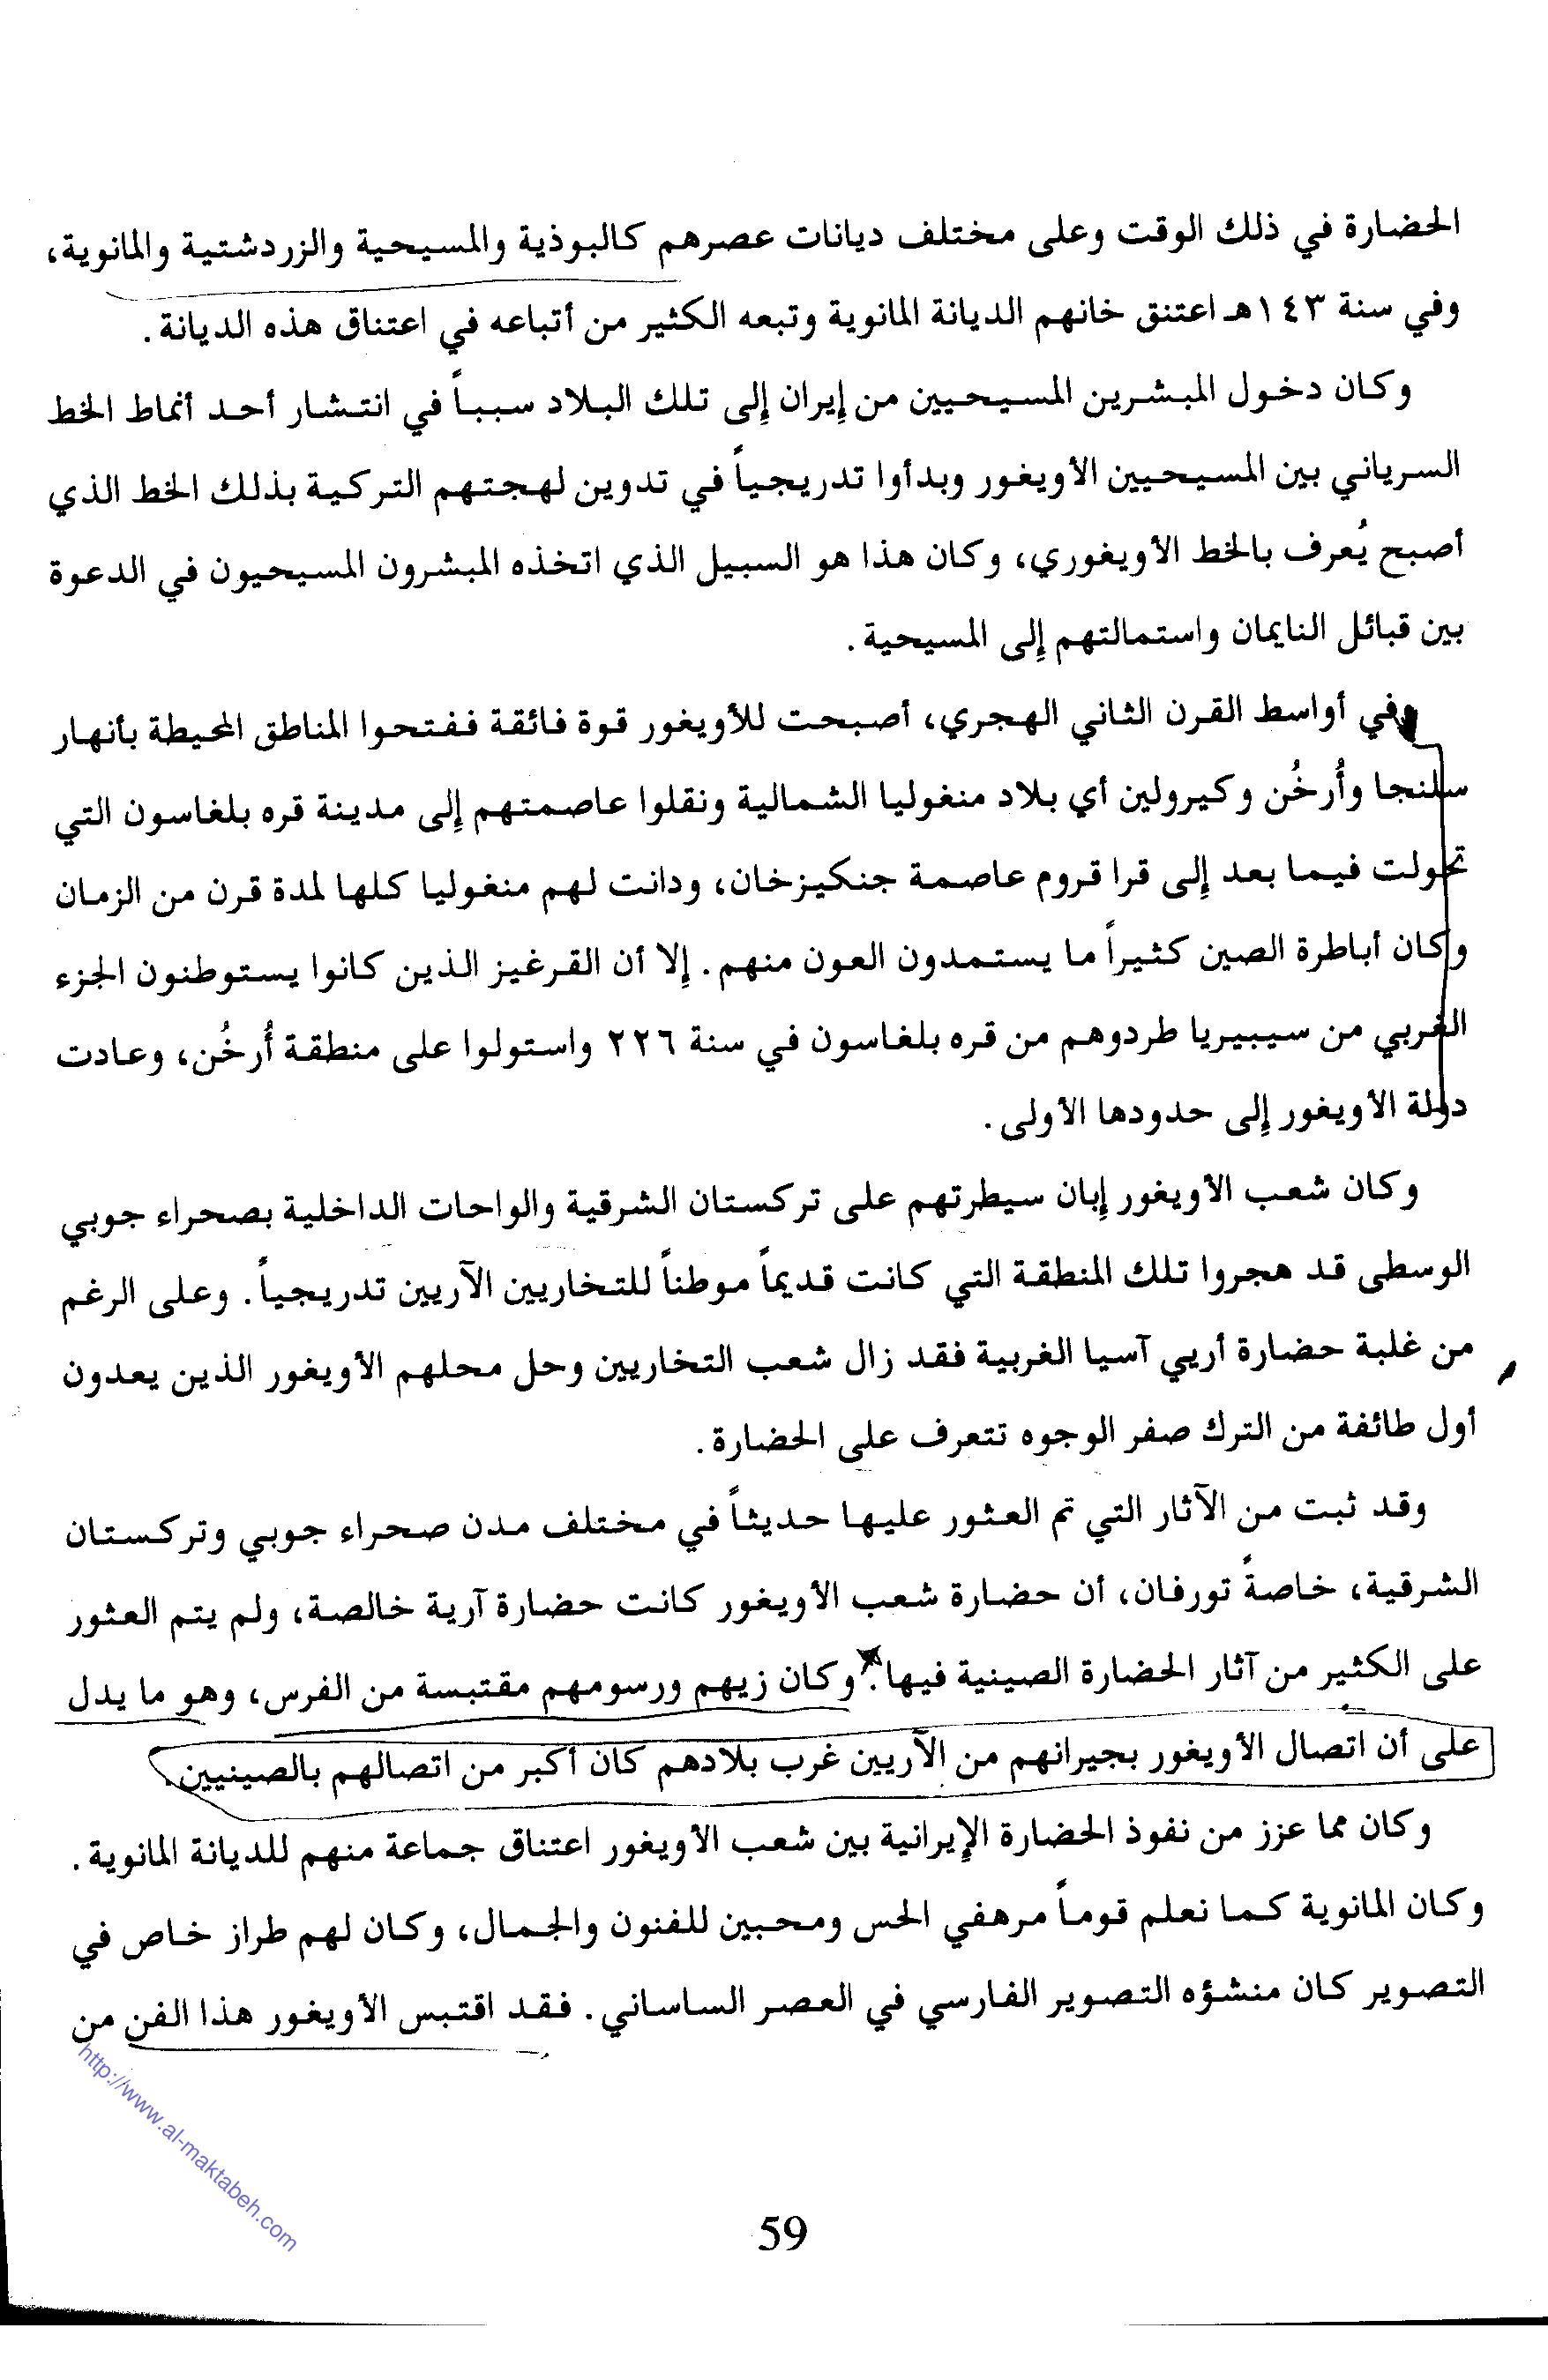 الحضارة في ذلك الوقت وعلى مختلف ديانات عصرهم كالبوذية والمسيحية والزردشتية والمانوية،
وفي سنة ١٤٣هـ اعتنق خانهم الديانة المانوية وتبعه الكثير من أتباعه في اعتناق هذه الديانة.
وكان دخول المبشرين المسيحيين من إيران إلى تلك البلاد سبباً في انتشار أحد أنماط الخط
السرياني بين المسيحيين الأويغور وبدأوا تدريجياً في تدوين لهجتهم التركية بذلك الخط الذي
أصبح يُعرف بالخط الأويغوري، وكان هذا هو السبيل الذي اتخذه المبشرون المسيحيون في الدعوة
بين قبائل النايمان واستمالتهم إلى المسيحية.
وفي أواسط القرن الثاني الهجري، أصبحت للأويغور قوة فائقة ففتحوا المناطق المحيطة بأنهار
سلنجا وأُرخُن وكيرولين أي بلاد منغوليا الشمالية ونقلوا عاصمتهم إلى مدينة قره بلغاسون التي
تحولت فيما بعد إلى قرا قروم عاصمة جنكيزخان، ودانت لهم منغوليا كلها لمدة قرن من الزمان
وكان أباطرة الصين كثيراً ما يستمدون العون منهم. إلا أن القرغيز الذين كانوا يستوطنون الجزء
الغربي من سيبيريا طردوهم من قره بلغاسون في سنة ٢٢٦ واستولوا على منطقة أُرخُن، وعادت
دولة الأويغور إلى حدودها الأولى.
وكان شعب الأويغور إبان سيطرتهم على تركستان الشرقية والواحات الداخلية بصحراء جوبي
الوسطى قد هجروا تلك المنطقة التي كانت قديماً موطناً للتخاريين الآريين تدريجياً. وعلى الرغم
من غلبة حضارة أريي آسيا الغربية فقد زال شعب التخاريين وحل محلهم الأويغور الذين يعدون
أول طائفة من الترك صفر الوجوه تتعرف على الحضارة.
وقد ثبت من الآثار التي تم العثور عليها حديثاً في مختلف مدن صحراء جوبي وتركستان
الشرقية، خاصةً تورفان، أن حضارة شعب الأويغور كانت حضارة آرية خالصة، ولم يتم العثور
على الكثير من آثار الحضارة الصينية فيها. وكان زيهم ورسومهم مقتبسة من الفرس، وهو ما يدل
على أن اتصال الأويغور بجيرانهم من الآريين غرب بلادهم كان أكبر من اتصالهم بالصينيين.
وكان مما عزز من نفوذ الحضارة الإيرانية بين شعب الأويغور اعتناق جماعة منهم للديانة المانوية.
وكان المانوية كما نعلم قوماً مرهفي الحس ومحبين للفنون والجمال، وكان لهم طراز خاص في
التصوير كان منشؤه التصوير الفارسي في العصر الساساني. فقد اقتبس الأويغور هذا الفن من
http://www.al-maktabeh.com
59